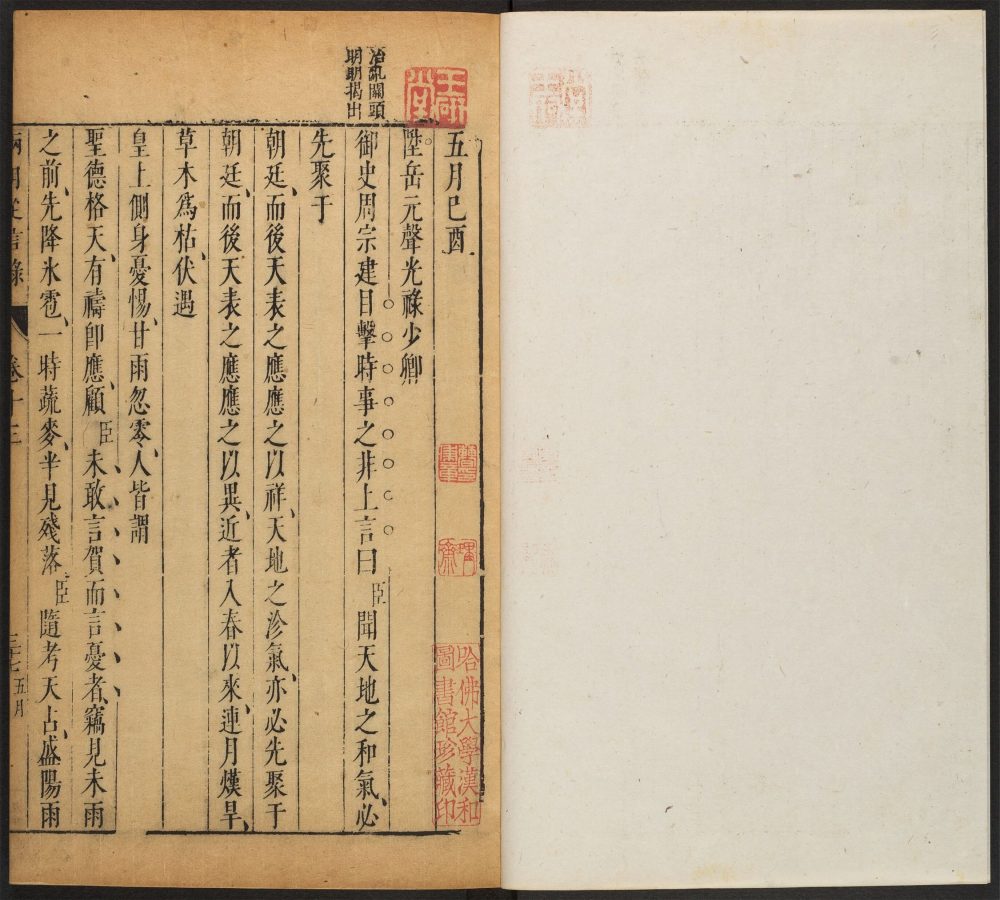 治亂關頭
明明揭出
五月己酉
陞岳元聲光祿少卿
御史周宗建目擊時事之非上言曰臣聞天地之和氣必
先聚于
朝廷而後天表之應應之以祥天地之沴氣亦必先聚于
朝廷而後天表之應應之以異近者入春以來連月熯旱
草木爲枯伏遇
皇上側身憂惕甘雨忽零人皆謂
聖德格天有禱卽應顧臣未敢言賀而言憂者竊見未雨
之前先降氷雹一時蔬麥半見殘落臣隨考天占盛陽雨
兩朝從信錄 卷十三 五月
哈佛大學漢和
圖書館珍藏印